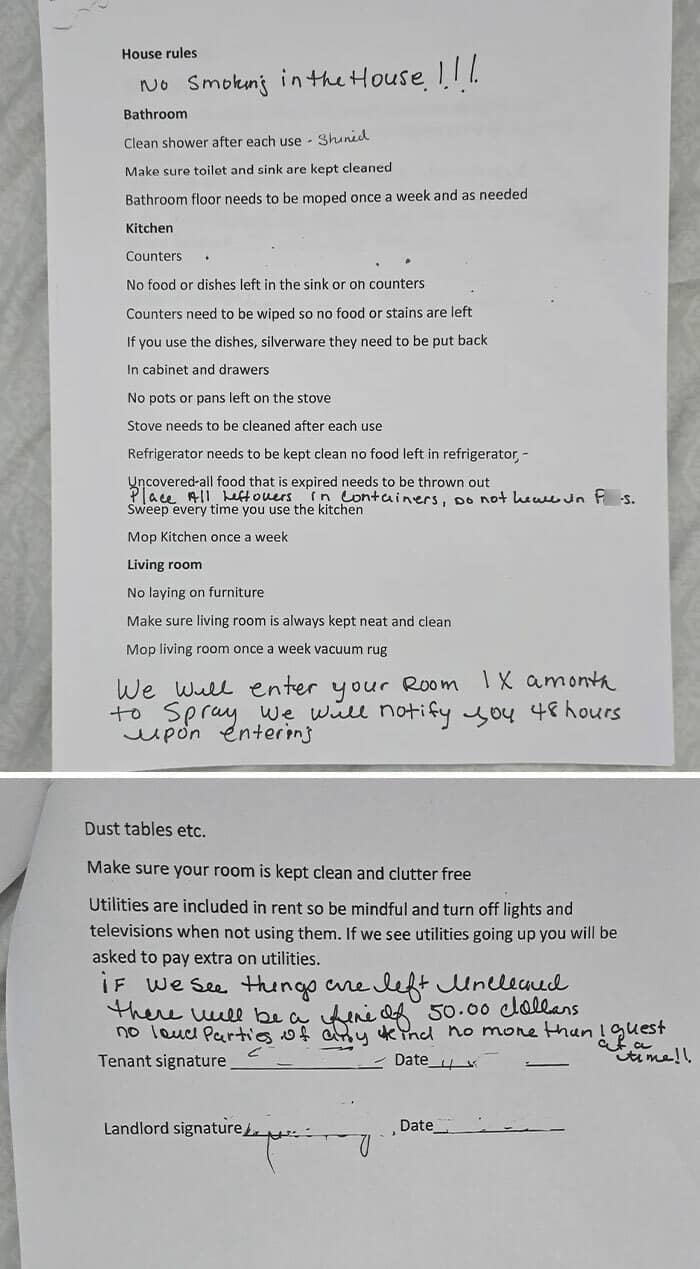 House rules
No Smoking in the House !!!
Bathroom
Clean shower after each use -
Make sure toilet and sink are kept cleaned
Bathroom floor needs to be moped once a week and as needed
Kitchen
Counters
No food or dishes left in the sink or on counters
Counters need to be wiped so no food or stains are left
If you use the dishes, silverware they need to be put back
In cabinet and drawers
No pots or pans left on the stove
Stove needs to be cleaned after each use
Refrigerator needs to be kept clean no food left in refrigerator, -
Uncovered-all food that is expired needs to be thrown out
Place All Leftovers In Containers, Do not leave in
Sweep every time you use the kitchen
Mop Kitchen once a week
Living room
No laying on furniture
Make sure living room is always kept neat and clean
Mop living room once a week vacuum rug
We will enter your Room 1X a month
to Spray we will notify you 48 hours
upon entering
Dust tables etc.
Make sure your room is kept clean and clutter free
Utilities are included in rent so be mindful and turn off lights and
televisions when not using them. If we see utilities going up you will be
asked to pay extra on utilities.
iF we see things are left uncleaned
there will be a fine of 50.00 dollars
no loud Parties of any kind no more than 1 guest
at a
time!!
Tenant signature Date
Landlord signature Date